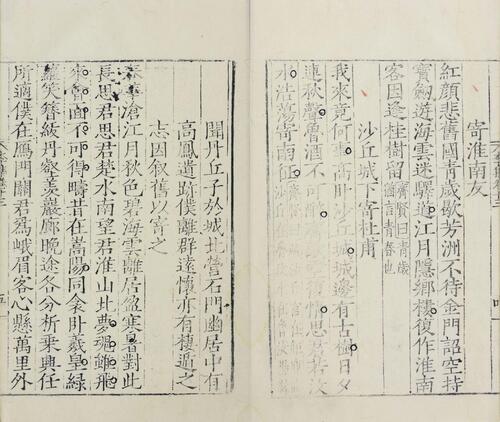 寄淮南友
紅顔悲舊國青歲歇芳洲不待金門詔空持
寶劒遊海雲迷驛道江月隱鄉樓復作淮南
客因逢桂樹留齊賢曰青歲猶言青春也
沙丘城下寄杜甫
我來竟何事高卧沙丘城城邊有古樹日夕
連秋聲魯酒不可醉復情思君若汶
水浩蕩寄南征
聞丹丘子於城北營石門幽居中有
高鳳遺跡僕離群遠懷亦有棲遁之
志因叙舊以寄之
春華滄江月秋色碧海雲離居盈寒暑對此
長思君思君楚水南望君淮山北夢魂雖飛
來會面不可得疇昔在嵩陽同衾卧羲皇緑
蘿笑簪紱丹壑羨巖廊晚途各分析乗興任
所適僕在鴈門關君爲峨眉客心懸萬里外